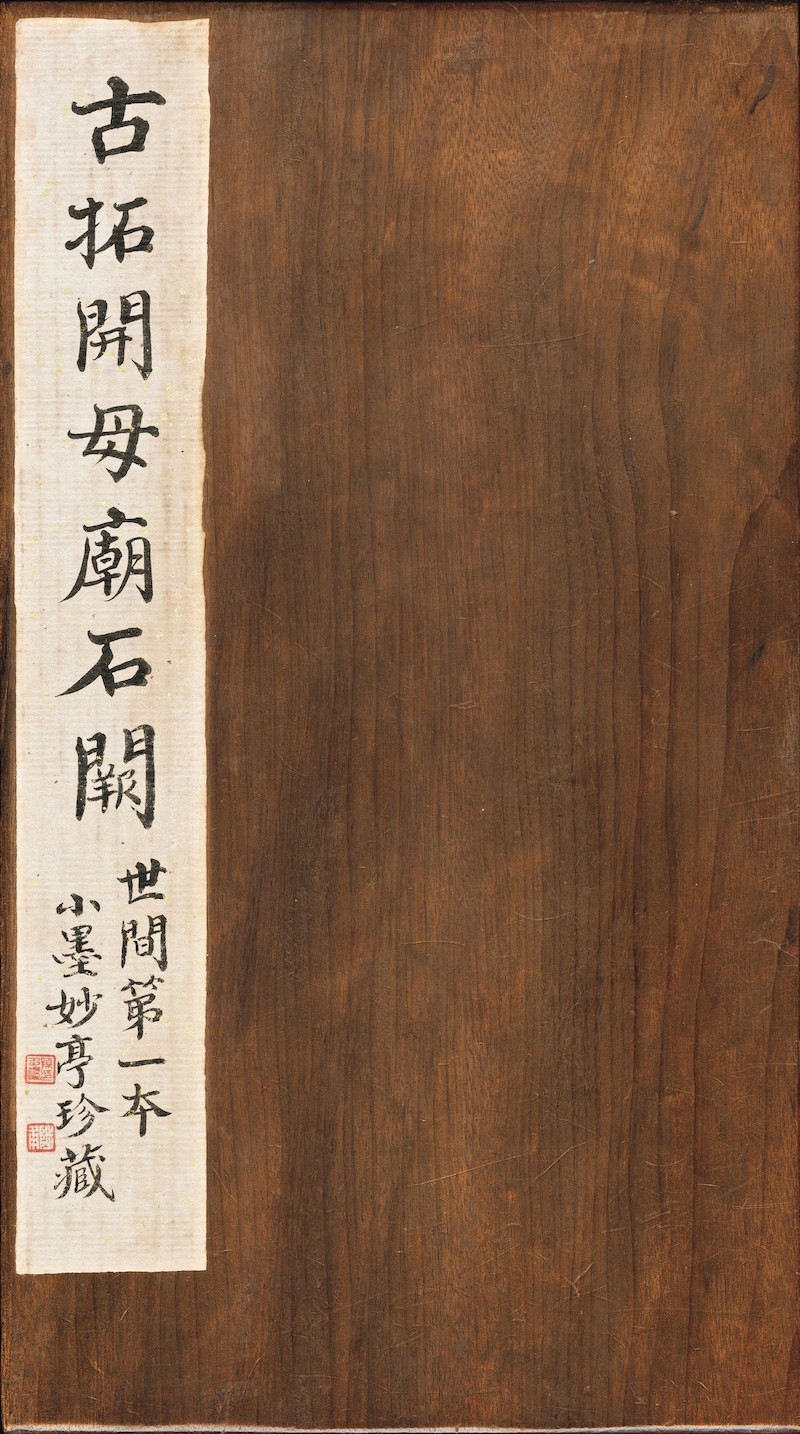 古拓開母廟石闕
世間第一本
小墨妙亭珍藏